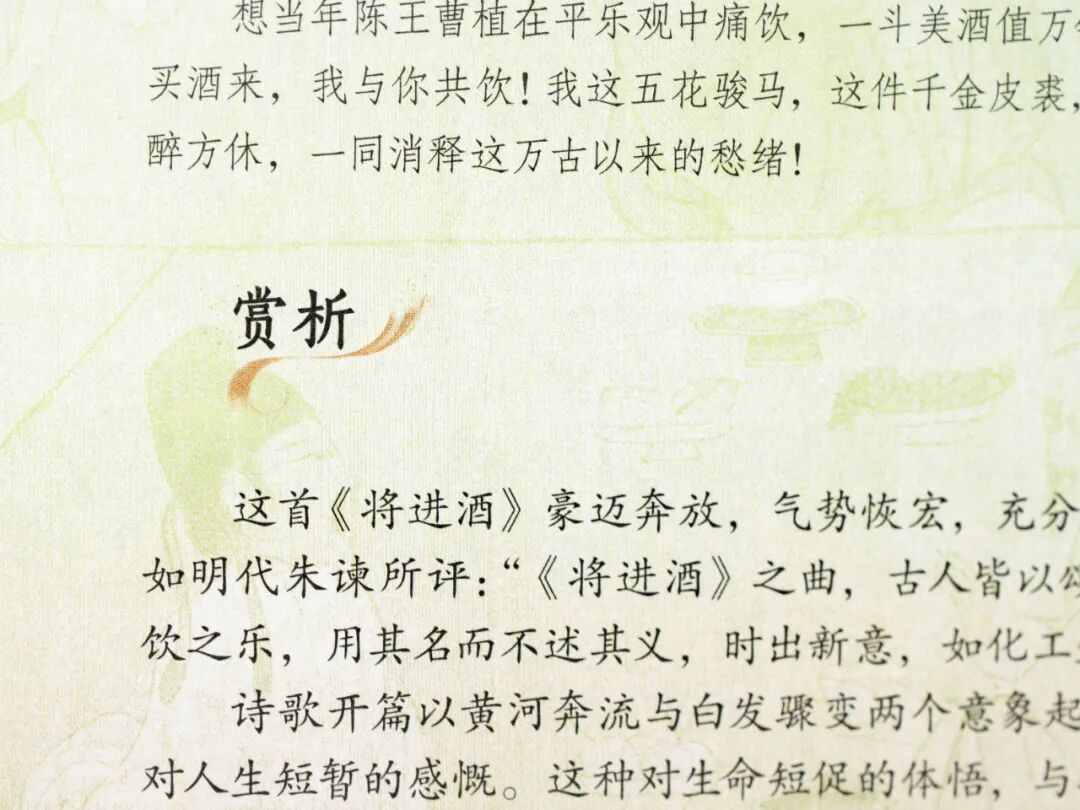 想当年陈王曹植在平乐观中痛饮，一斗美酒值万
买酒来，我与你共饮！我这五花骏马，这件千金皮裘，
醉方休，一同消释这万古以来的愁绪！
赏析
这首《将进酒》豪迈奔放，气势恢宏，充分
如明代朱谏所评：“《将进酒》之曲，古人皆以
饮之乐，用其名而不述其义，时出新意，如化工
诗歌开篇以黄河奔流与白发骤变两个意象起
对人生短暂的感慨。这种对生命短促的体悟，与